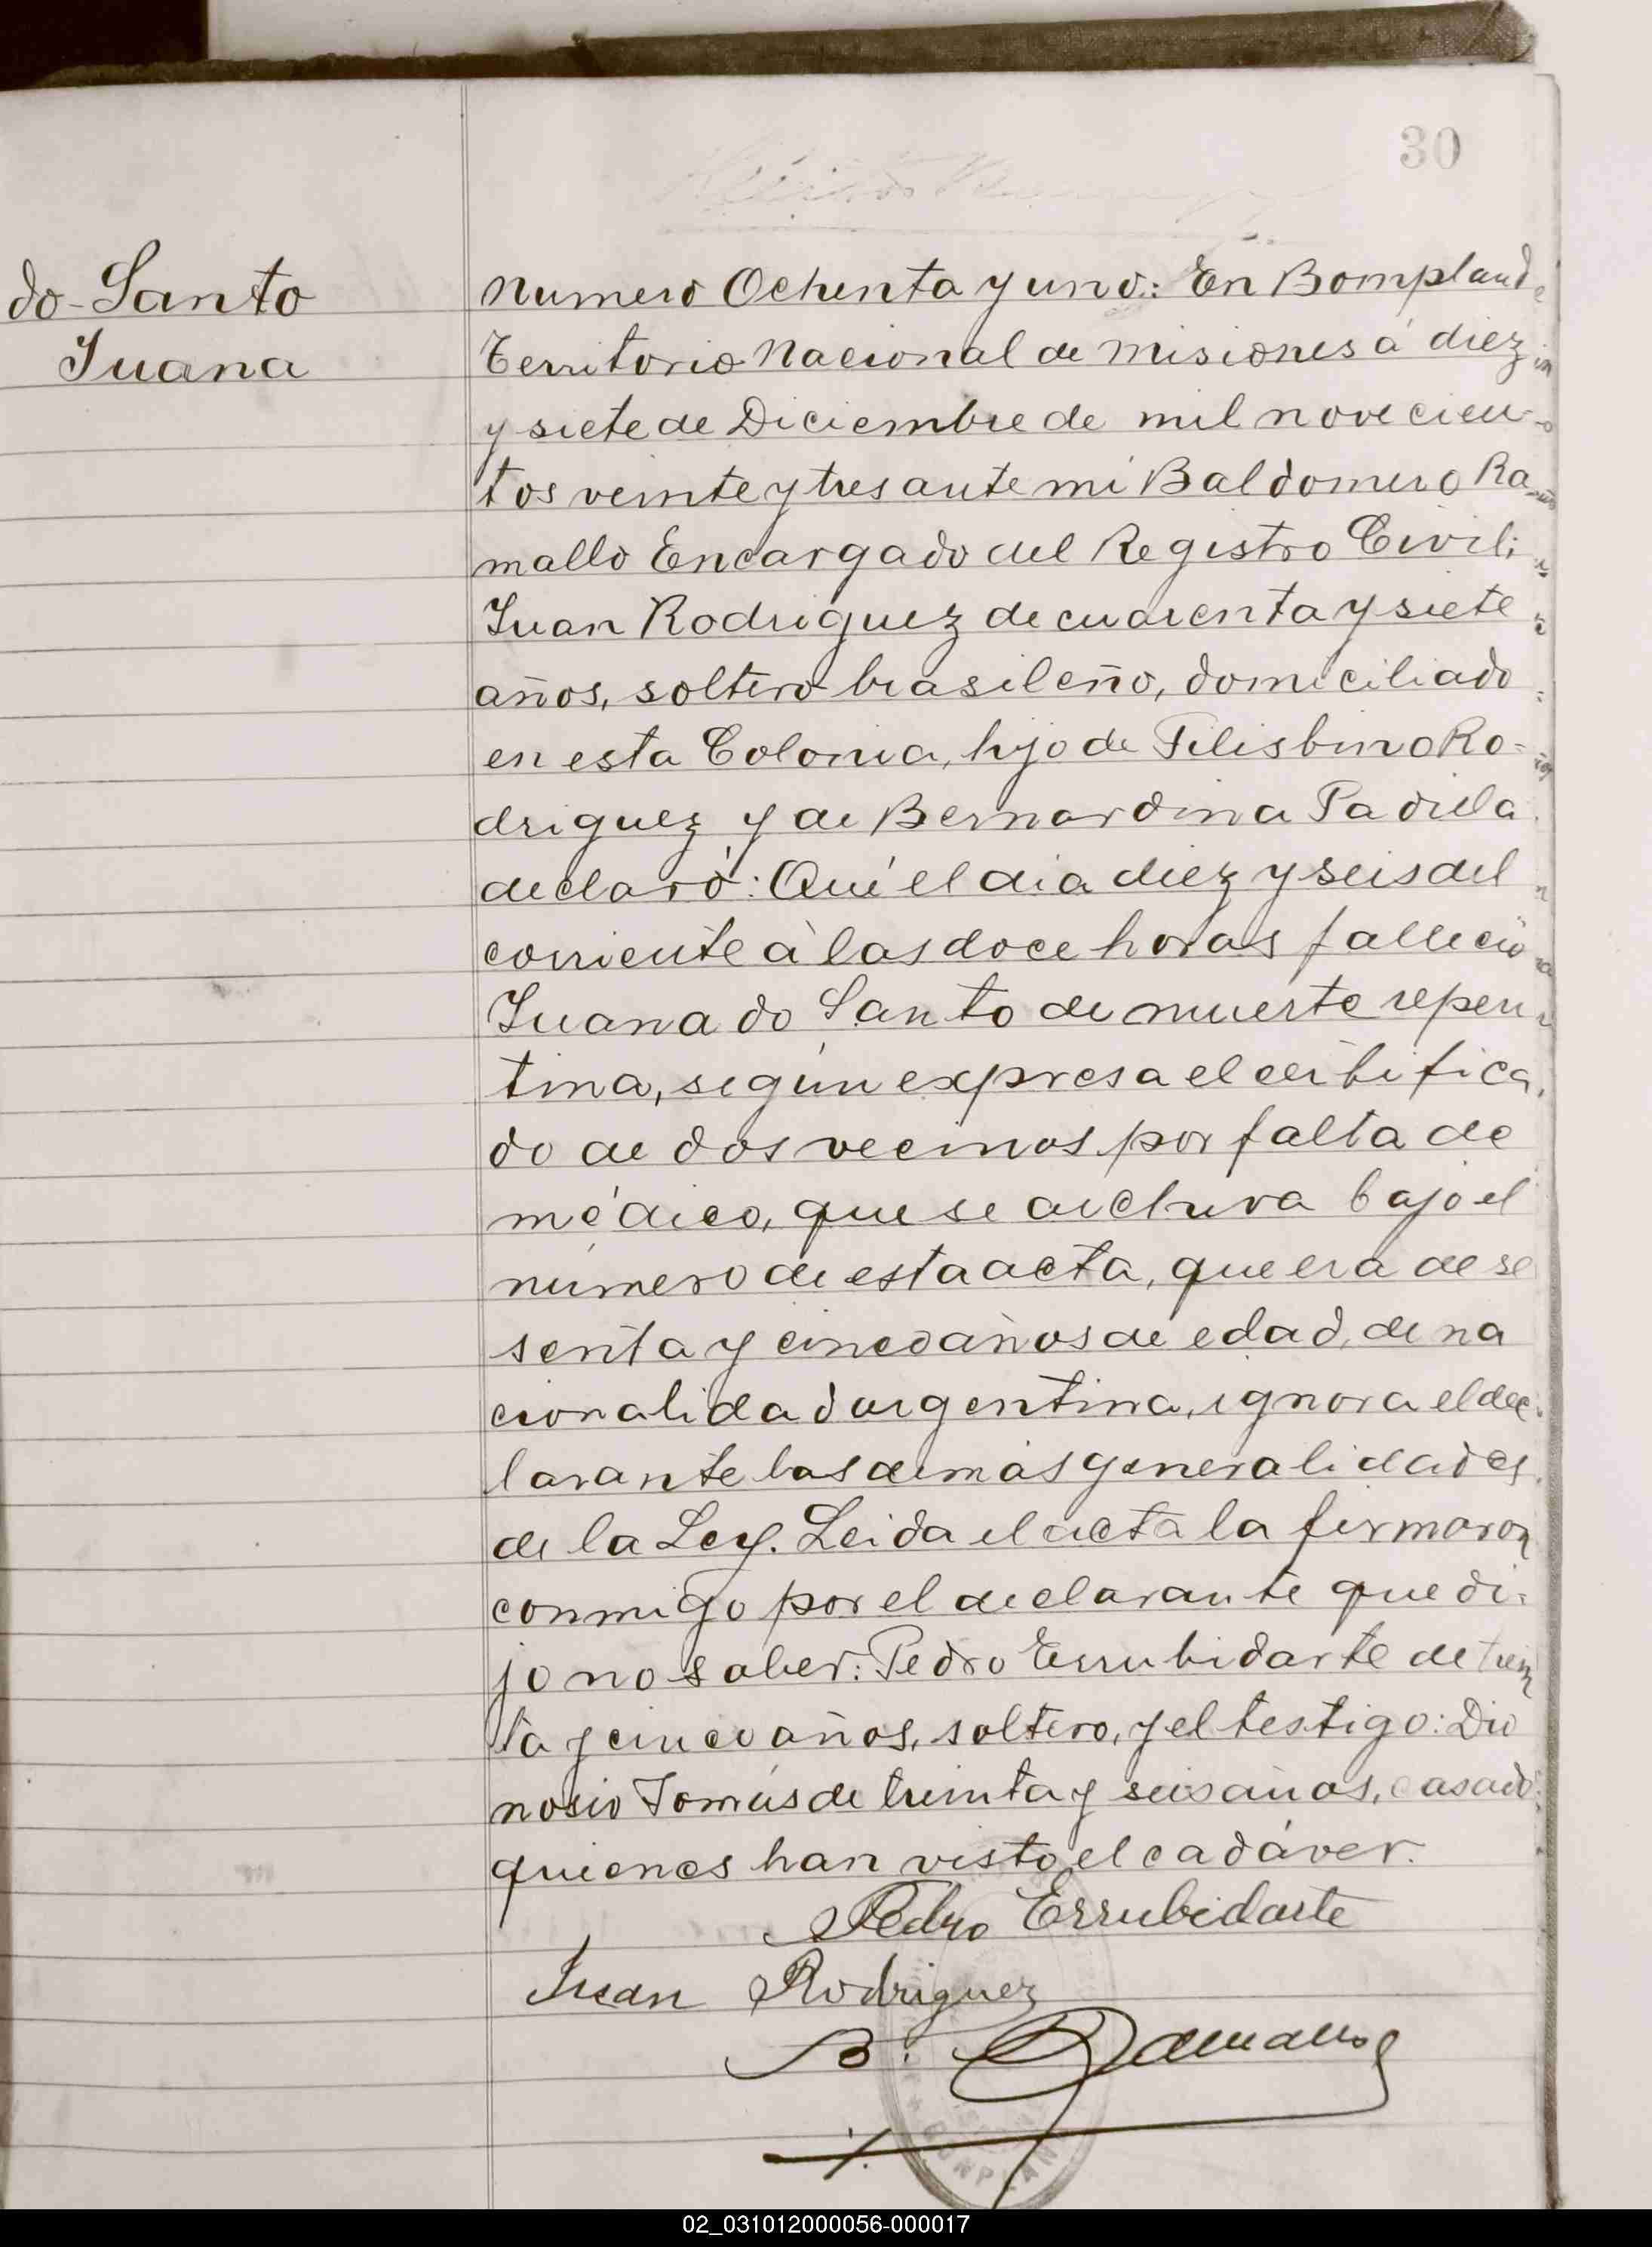 30
do-Santo
Juana
Numero Ochenta y uno: En Bompland
Territorio Nacional de Misiones á diez
y siete de Diciembre de mil novecien-
tos veinte y tres ante mi Baldomero Ra
mallo Encargado del Registro Civil;
Juan Rodriguez de cuarenta y siete
años, soltero brasileño, domiciliado
en esta Colonia, hijo de Filisbino Ro-
driguez y de Bernardina Padilla
declaró: Qué el dia diez y seis del
corriente á las doce horas falleció
Juana do Santo de muerte repen
tina, según expresa el certifica
do de dos vecinos por falta de
médico, que se archiva bajo el
número de esta acta, que era de se
senta y cinco años de edad, de na
cionalidad argentina, ignora el dec
larante las demás generalidades
de la Ley. Leida el acta la firmaron
conmigo por el declarante que di-
jo no saber: Pedro Errubidarte de trein
ta y cinco años, soltero, y el testigo: Dio
nosio Tomás de treinta y seis años, casado
quienes han visto el cadáver.
Pedro Errubidarte
Juan Rodriguez
B. Ramallo
02_031012000056-000017